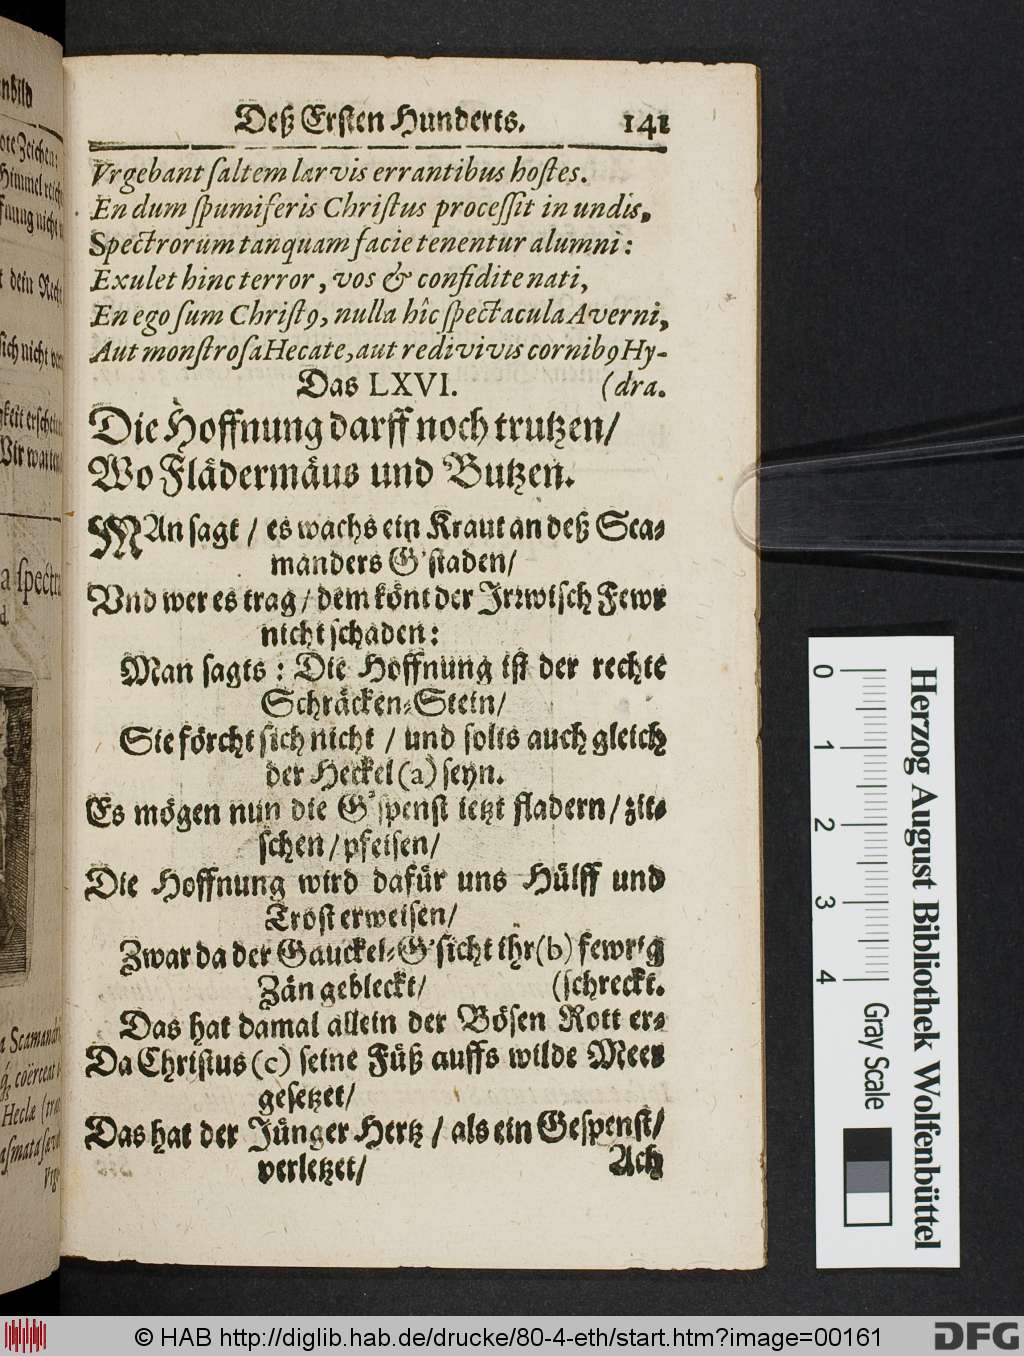 Deß Ersten Hunderts. 141
Vrgebant ſaltem larvis errantibus hoſtes.
En dum ſpumiferis Chriſtus proceſſit in undis,
Spectrorum tanquam facie tenentur alumni:
Exulet hinc terror, vos & confidite nati,
En ego ſum Chriſtꝯ, nulla hîc ſpectacula Averni,
Aut monſtroſa Hecate, aut redivivis cornibꝯ Hy-
Das LXVI. (dra.
Die Hoffnung darff noch trutzen/
Wo Flädermäus und Butzen.
MAn ſagt / es wachs ein Kraut an deß Sca-
manders G'ſtaden/
Vnd wer es trag / dem könt der Irrwiſch Fewr
nicht ſchaden:
Man ſagts : Die Hoffnung iſt der rechte
Schräcken-Stein/
Sie förcht ſich nicht / und ſolts auch gleich
der Heckel (a) ſeyn.
Es mögen nun die G'ſpenſt ietzt fladern / zit-
ſchen / pfeiſen/
Die Hoffnung wird dafür uns Hülff und
Troſt erweiſen/
Zwar da der Gauckel-G'ſicht ihr (b) fewrig
Zän gebleckt/ (ſchreckt.
Das hat damal allein der Böſen Rott er-
Da Chriſtus (c) ſeine Füß auffs wilde Meer
geſetzet/
Das hat der Jünger Hertz / als ein Geſpenſt/
verletzet/ Ach
nbild
ote Zeichen;
Himmel reich
fnung nicht
t dein Recht
ſich nicht
gkeit erſchein
Wir
a ſpectr
d.
a Scamandr
Heclæ
Vrge
0 1 2 3 4
Herzog August Bibliothek Wolfenbüttel
Gray Scale
© HAB http://diglib.hab.de/drucke/80-4-eth/start.htm?image=00161
DFG